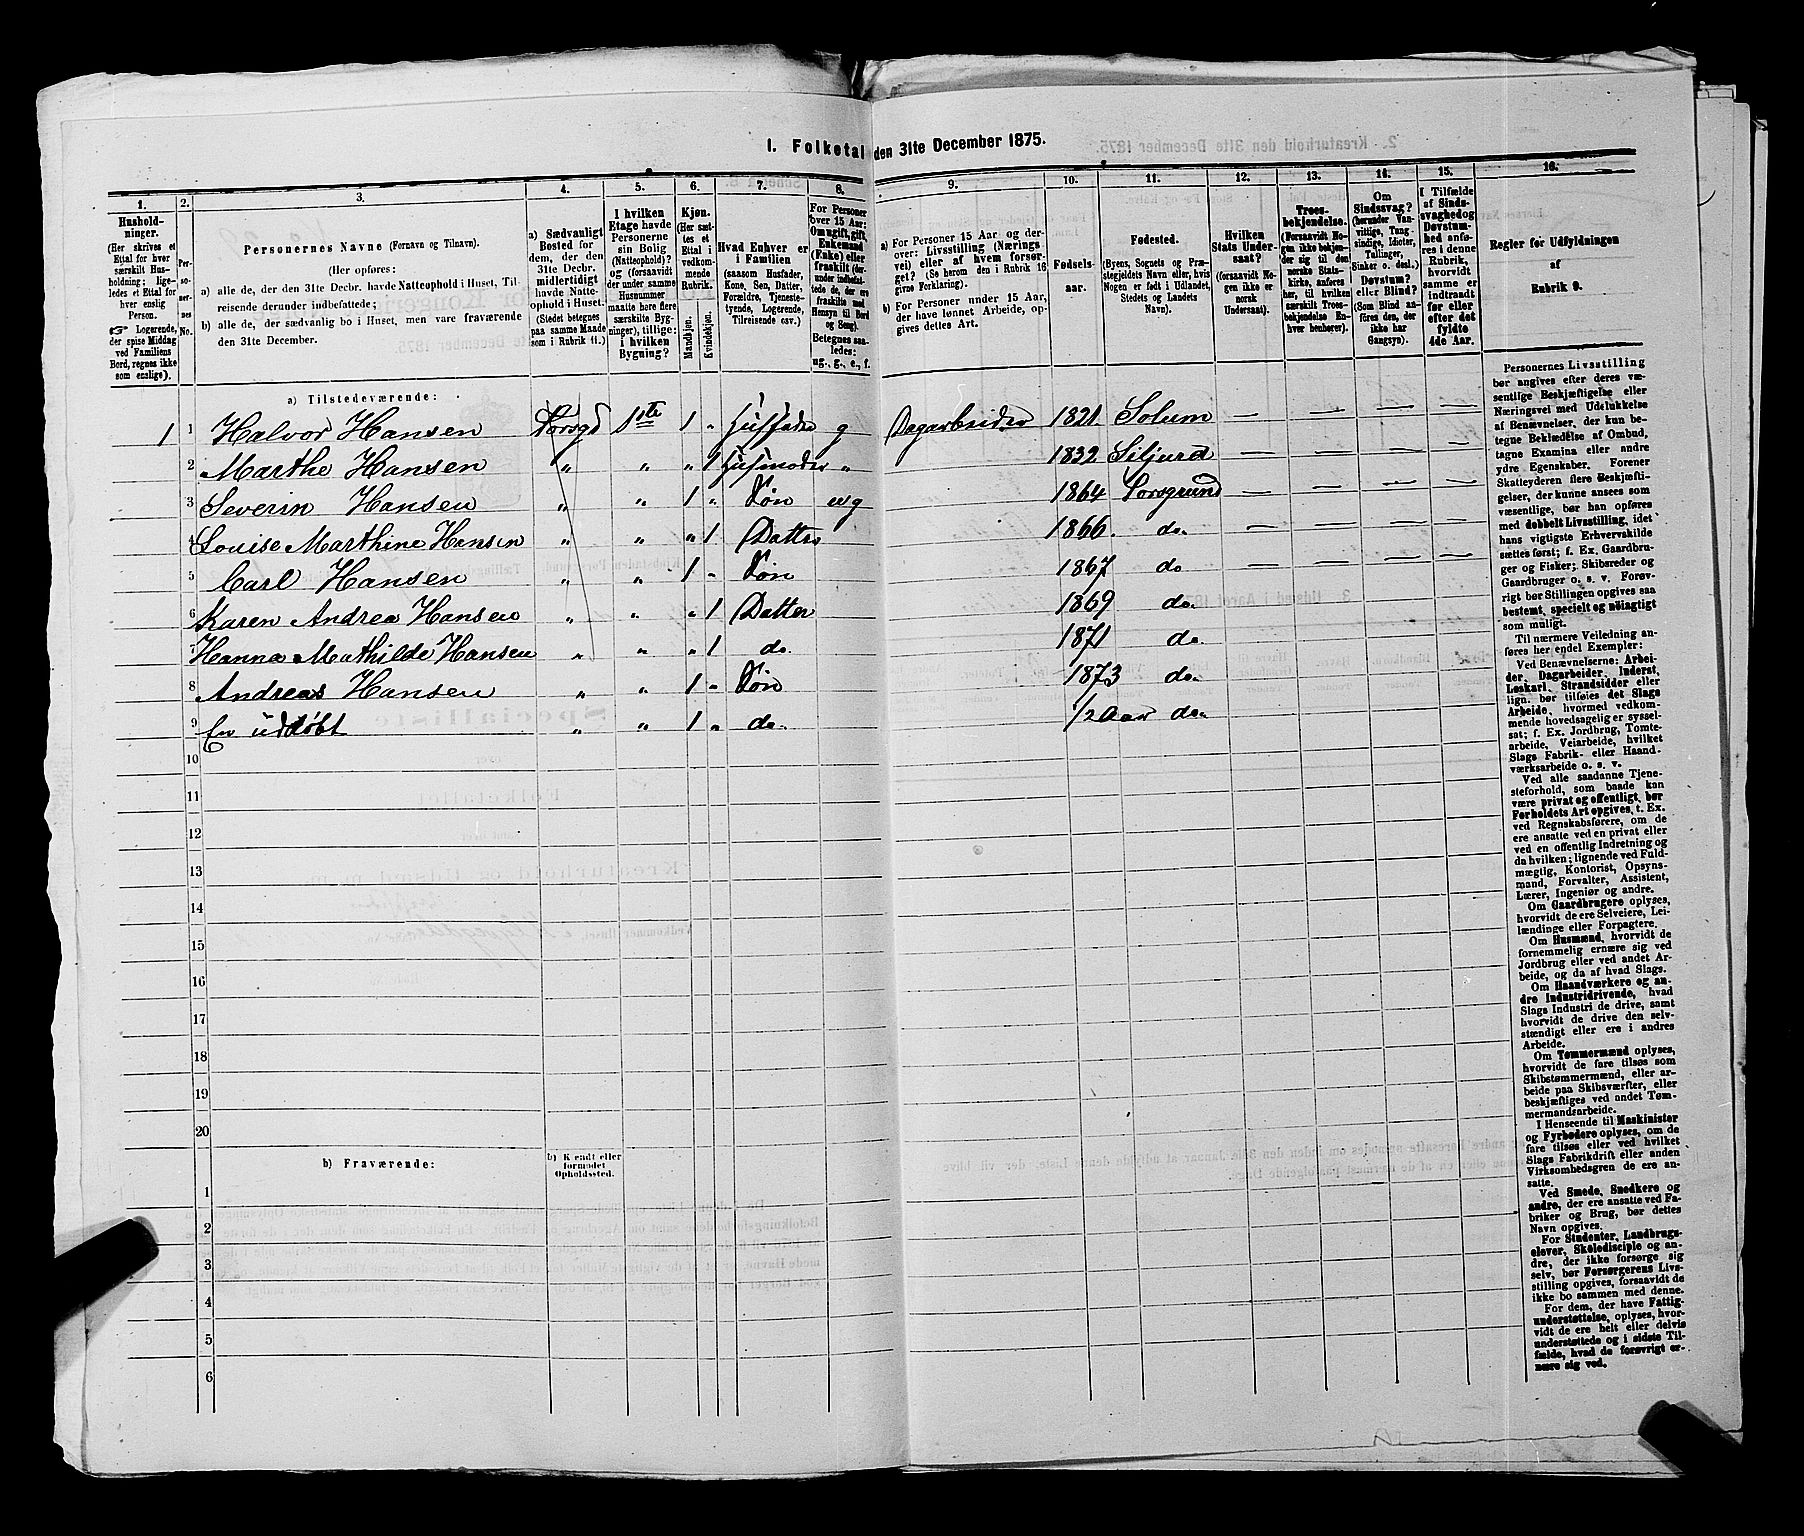 1. Folketal den 31te December 1875.
1. 2. 3. 4. 5. 6. 7. 8. 9. 10. 11. 12. 13. 14. 15. 16.
Husholdninger.
(Her skrives et
Ettal for hver
særskilt Husholdning;
ligeledes
et Ettal for
hver enslig
Person.
☞ Logerende,
der spise Middag
ved Familiens
Bord, regnes ikke
som enslige).
Personernes
No.
Personernes Navne (Fornavn og Tilnavn).
(Her opføres:
a) alle de, der den 31te Decbr. havde Natteophold i Huset, Tilreisende
derunder indbefattede;
b) alle de, der sædvanlig bo i Huset, men vare fraværende
den 31te December.
a) Sædvanligt
Bosted for
dem, der den
31te Decbr.
midlertidigt
havde Natteophold
i Huset.
(Stedet betegnes
paa samme Maade
som i Rubrik 11.)
I hvilken
Etage havde
Personerne
sin Bolig
(Natteophold)?
og (forsaavidt
der under samme
Husnummer
maatte høre flere
særskilte Bygninger),
tillige:
i hvilken
Bygning?
Kjøn.
(Her sættes
et
Ettal i
vedkommende
Rubrik.
Mandkjøn.
Kvindekjøn.
Hvad Enhver er
i Familien
(saasom Husfader,
Kone, Søn, Datter,
Forældre, Tjenestetyende,
Logerende,
Tilreisende osv.)
For Personer
over 15 Aar:
Om ugift, gift,
Enkemand
(Enke) eller
fraskilt (derunder
indbefattede,
der ere
fraskilte med
Hensyn til Bord
og Seng).
Betegnes saaledes:
ug., g., e., f.
a) For Personer 15 Aar og derover:
Livsstilling (Næringsvei)
eller af hvem forsørget?
(Se herom den i Rubrik 16
givne Forklaring).
b) For Personer under 15 Aar,
der have lønnet Arbeide, opgives
dettes Art.
Fødselsaar.
Fødested.
(Byens, Sognets og Præstegjeldets
Navn eller, hvis
Nogen er født i Udlandet,
Stedets og Landets
Navn).
Hvilken
Stats Undersaat?
(forsaavidt Nogen
ikke er
norsk
Undersaat).
Troesbekjendelse.
(Forsaavidt Nogen
ikke bekjender
sig til den
norske Statskirke,
anføres
her, til hvilken
særskilt Troesbekjendelse
Enhver
henhører).
Om
Sindssvag?
(herunder Vanvittige,
Tungsindige,
Idioter,
Tullinger,
Sinker o. desl.)
Døvstum?
eller Blind?
(Som Blind anføres
den, der
ikke har
Gangsyn).
I Tilfælde
af Sindssvaghed
og
Døvstumhed
anføres
i denne
Rubrik,
hvorvidt
samme er
indtraadt
før eller
efter det
fyldte
4de Aar.
Regler for Udfyldningen
af
Rubrik 9.
a) Tilstedeværende:
1 1 Halvor Hansen Porsgd 1ste 1 " Husfader g Dagarbeider 1821. Solum — — — —
2 Marthe Hansen " " " 1 Husmoder " 1832 Siljurd — — — —
3 Severin Hansen " " 1 " Søn ug 1864 Porsgrund — — — —
4 Louise Marthine Hansen " " " 1 Datter 1866. do. — — — —
5 Carl Hansen " " 1 " Søn 1867 do — — — —
6 Karen Andrea Hansen " " " 1 Datter 1869 do.
7 Hanna Mathilde Hansen " " " 1 do. 1871 do.
8 Andreas Hansen " " 1 " Søn 1873 do.
9 En uddøbt " " 1 " do. 1/2 Aar do.
10
11
12
13
14
15
16
17
18
19
20
b) Fraværende:
b) Kjendt eller
formodet
Opholdssted.
1
2
3
4
5
6
Personernes Livsstilling
bør angives efter deres væsentlige
Beskjæftigelse eller
Næringsvei med Udelukkelse
af Benævnelser, der kun betegne
Beklædelse af Ombud,
tagne Examina eller andre
ydre Egenskaber. Forener
Skatteyderen flere Beskjæftigelser,
der kunne ansees som
væsentlige, bør han opføres
med dobbelt Livsstilling, idet
hans vigtigste Erhvervskilde
sættes først; f. Ex. Gaardbruger
og Fisker; Skibsreder og
Gaardbruger o. s. v. Forøvrigt
bør Stillingen opgives saa
bestemt, specielt og nøiagtigt
som muligt.
Til nærmere Veiledning anføres
her endel Exempler:
Ved Benævnelserne: Arbeider,
Dagarbeider, Inderst,
Løskarl, Strandsidder eller
lign. bør tilføies det Slags
Arbeide, hvormed vedkommende
hovedsagelig er sysselsat;
f. Ex. Jordbrug, Tomtearbeide,
Veiarbeide, hvilket
Slags Fabrik- eller Haandværksarbeide
o. s. v.
Ved alle saadanne Tjenesteforhold,
som baade kan
være privat og offentligt, bør
Forholdets Art opgives, t. Ex.
ved Regnskabsførere, om de
ere ansatte ved en privat eller
ved en offentlig Indretning og
da hvilken; lignende ved Fuldmægtig,
Kontorist, Opsynsmand,
Forvalter, Assistent,
Lærer, Ingeniør og andre.
Om Gaardbrugere oplyses,
hvorvidt de ere Selveiere, Leilændinge
eller Forpagtere.
Om Husmænd, hvorvidt de
fornemmelig ernære sig ved
Jordbrug eller ved andet Arbeide,
og da af hvad Slags.
Om Haandværkere og andre
Industridrivende, hvad
Slags Industri de drive, samt
hvorvidt de drive den selvstændigt
eller ere i andres
Arbeide.
Om Tømmermænd oplyses,
hvorvidt de fare tilsøs som
Skibstømmermænd, eller arbeide
paa Skibsværfter, eller
beskjæftiges ved andet Tømmermandsarbeide.
I Henseende til Maskinister
og Fyrbødere oplyses, om de
fare tilsøs eller ved hvilket
Slags Fabrikdrift eller anden
Virksomhedsgren de ere ansatte.
Ved Smede, Snedkere og
andre, der ere ansatte ved Fabriker
og Brug, bør dettes
Navn opgives.
For Studenter, Landbrugselever,
Skoledisciple og andre,
der ikke forsørge sig
selv, bør Forsørgerens Livsstilling
opgives, forsaavidt de
ikke bo sammen med denne.
For dem, der have Fattigunderstøttelse,
oplyses, hvorvidt
de ere helt eller delvis
understøttede og i sidste Tilfælde,
hvad de forøvrigt ernære
sig ved.